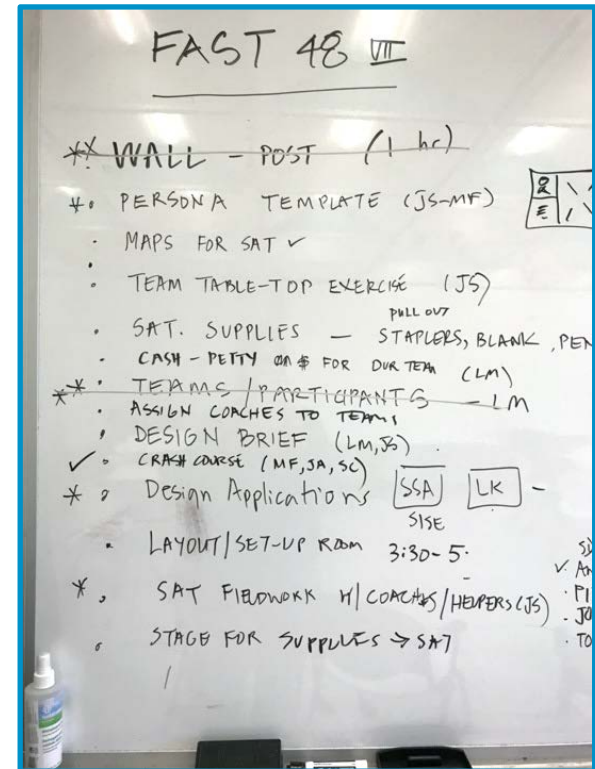 FAST 48 VII
** WALL - POST (1 hr)
* • PERSONA TEMPLATE (JS-MF)
• MAPS FOR SAT ✓
•
• TEAM TABLE-TOP EXERCISE (JS)
PULL OUT
• SAT. SUPPLIES — STAPLERS, BLANK, PEN
• CASH - PETTY $ FOR OUR TEAM (LM)
** • TEAMS / PARTICIPANTS - LM
• ASSIGN COACHES TO TEAMS
• DESIGN BRIEF (LM, JS)
✓ • CRASH COURSE (MF, JA, SC)
* • Design Applications SSA LK -
SISE
• LAYOUT/SET-UP ROOM 3:30-5.
* • SAT FIELDWORK W/COACHES/HELPERS (JS)
• STAGE FOR SUPPLIES → SAT
✓ AN
• PI
• JO
• TO